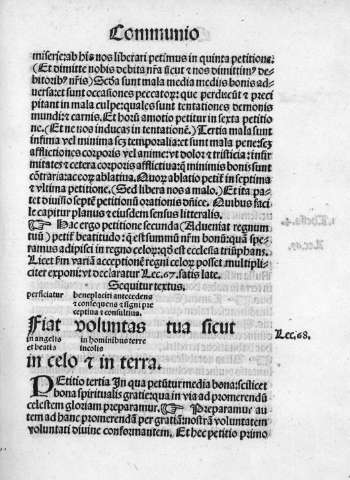 Communio
miserie: ab his nos liberari petimus in quinta petitione:
(Et dimitte nobis debita nr̄a sicut ⁊ nos dimittimꝰ de⸗
bitoribꝰ nr̄is) Scd̄a sunt mala media mediis bonis ad
versa: et sunt occasiones peccatorꝝ: que perducūt ⁊ preci
pitant in mala culpe: quales sunt tentationes demonis
mundi: ⁊ carnis. Et horū amotio petitur in sexta petitio
ne. (Et ne nos inducas in tentationē.) Tertia mala sunt
infima vel minima sꝫ temporalia: et sunt mala pene: sꝫ
afflictiones corporis vel anime: vt dolor ⁊ tristicia: infir
mitates ⁊ cetera corporis afflictiua: q̄ minimis bonis sunt
cōtraria: accoꝝ ablatiua. Quoꝝ ablatio petit̄ in septima
⁊ vltima petitione. (Sed libera nos a malo.) Et ita pa⸗
tet diuisio septē petitionū orationis dn̄ice. Quibus faci⸗
le capitur planus ⁊ eiusdem sensus litteralis.
☞ Hac ergo petitione secunda (Adueniat regnum
tuū) petit̄ beatitudo: q̄ est summū nr̄m bonū: quā spe⸗
ramus adipisci in regno celoꝝ: qd̄ est ecclesia triūphans.
Licet fm̄ variā acceptionē regni celoꝝ posset multipli⸗
citer exponi: vt declaratur Lec. 67. satis late.
Sequitur textus.
perficiatur beneplaciti antecedens
⁊ consequens ⁊ signi pre
ceptiua ⁊ consultiua.
Fiat voluntas tua sicut
Lec. 68.
in angelis in hominibus terre
et beatis incolis
in celo ⁊ in terra.
PEtitio tertia In qua petūtur media bona: scilicet
bona spiritualis gratie: qua in via ad promerendū
celestem gloriam preparamur. ☞ Preparamur au
tem ad hanc promerendā per gratiā: nostrā voluntatem
voluntati diuine conformantem. Et hec petitio primo